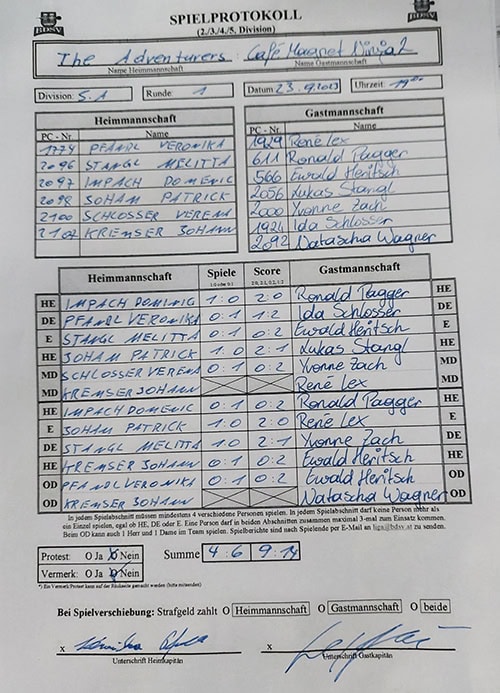 SPIELPROTOKOLL
BDSV (2./3./4./5. Division) BDSV
The Adventurers : Café Magnet Ninja 2
Name Heimmannschaft Name Gastmannschaft
Division: 5.1 Runde: 1 Datum 23.9.2023 Uhrzeit: 19 00
Heimmannschaft Gastmannschaft
PC - Nr. Name PC - Nr. Name
1774 PFANDL VERONIKA 1929 René Lex
2096 STANGL MELITTA 611 Ronald Pagger
2097 IMPACH DOMENIC 566 Ewald Heritsch
2098 JOHAM PATRICK 2056 Lukas Stangl
2100 SCHLOSSER VERENA 2000 Yvonne Zach
2102 KREMSER JOHANN 1924 Ida Schlosser
2092 Natascha Wagner
Heimmannschaft Spiele Score Gastmannschaft
1:0 or 0:1 2:0, 2:1, 0:2, 1:2
HE IMPACH DOMINIG 1:0 2:0 Ronald Pagger HE
DE PFANDL VERONIKA 0:1 1:2 Ida Schlosser DE
E STANGL MELITTA 0:1 0:2 Ewald Heritsch E
HE JOHAM PATRICK 1:0 2:1 Lukas Stangl HE
MD SCHLOSSER VERENA 0:1 0:2 Yvonne Zach MD
MD KREMSER JOHANN René Lex MD
HE IMPACH DOMENIC 0:1 0:2 Ronald Pagger HE
E JOHAM PATRICK 1:0 2:0 René Lex E
DE STANGL MELITTA 1:0 2:1 Yvonne Zach DE
HE KREMSER JOHANN 0:1 0:2 Ewald Heritsch HE
OD PFANDL VERONIKA 0:1 0:2 Ewald Heritsch OD
OD KREMSER JOHANN Natascha Wagner OD
In jedem Spielabschnitt müssen mindestens 4 verschiedene Personen spielen. In jedem Spielabschnitt darf keine Person mehr als
ein Einzel spielen, egal ob HE, DE oder E. Eine Person darf in beiden Abschnitten zusammen maximal 3-mal zum Einsatz kommen.
Beim OD kann auch 1 Herr und 1 Dame im Team spielen. Spielberichte sind nach Spielende per E-Mail an liga@bdsv.at zu senden.
Protest: O Ja O Nein Summe 4:6 9:14
Vermerk: O Ja O Nein
*) Ein Vermerk/Protest kann auf der Rückseite gemacht werden (bitte mitsenden)
Bei Spielverschiebung: Strafgeld zahlt O Heimmannschaft O Gastmannschaft O beide
x x
Unterschrift Heimkapitän Unterschrift Gastkapitän